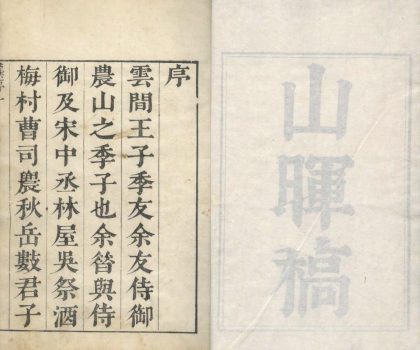 山暉稿
序
雲間王子季友余友侍御
農山之季子也余昝與侍
御及宋中丞林屋吳祭酒
梅村曹司農秋岳數君子